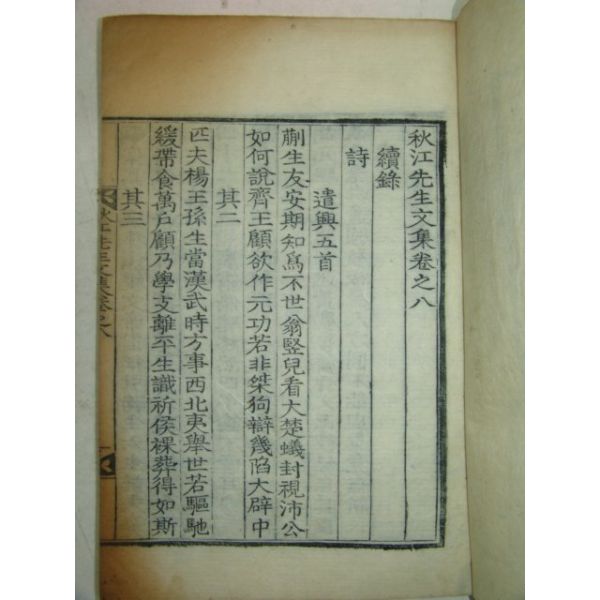 秋江先生文集卷之八
續錄
詩
遣興五首
蒯生友安期知爲不世翁竪兒看大楚蟻封視沛公
如何說齊王顧欲作元功若非桀狗辯幾陷大辟中
其二
匹夫楊王孫生當漢武時方事西北夷舉世若驅馳
緩帶食萬戶顧乃學支離平生識祈侯裸葬得如斯
其三
秋江先生文集卷之八